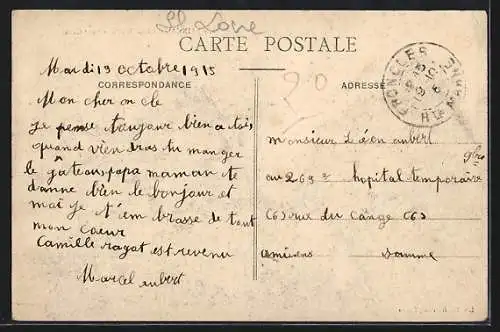 St Love
CARTE POSTALE
CORRESPONDANCE
ADRESSE
FRONCLES
Hte MARNE
20
Mardi 19 octobre 1915
Mon cher oncle
je pense toujour bien a toi
quand vien dras tu manger
le gâteau papa maman te
danne bien le bonjour et
moi je t'em brasse de tout
mon coeur
Camille ragot est revenu
Marcel aubert
monsieur Léon aubert
au 263e hopital temporaire
63 rue du Cange 63
amiens somme